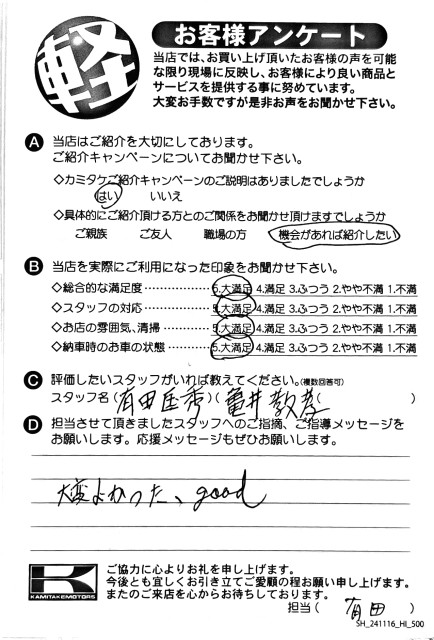 軽
お客様アンケート
当店では、お買い上げ頂いたお客様の声を可能
な限り現場に反映し、お客様により良い商品と
サービスを提供する事に努めています。
大変お手数ですが是非お声をお聞かせ下さい。
A 当店はご紹介を大切にしております。
ご紹介キャンペーンについてお聞かせ下さい。
◇カミタケご紹介キャンペーンのご説明はありましたでしょうか
はい いいえ
◇具体的にご紹介頂ける方とのご関係をお聞かせ頂けますでしょうか
ご親族 ご友人 職場の方 機会があれば紹介したい
B 当店を実際にご利用になった印象をお聞かせ下さい。
◇総合的な満足度……………5.大満足 4.満足 3.ふつう 2.やや不満 1.不満
◇スタッフの対応……………5.大満足 4.満足 3.ふつう 2.やや不満 1.不満
◇お店の雰囲気、清掃…………5.大満足 4.満足 3.ふつう 2.やや不満 1.不満
◇納車時のお車の状態…………5.大満足 4.満足 3.ふつう 2.やや不満 1.不満
C 評価したいスタッフがいれば教えてください。(複数回答可)
スタッフ名(有田 秀)(亀井 孝)( )
D 担当させて頂きましたスタッフへのご指摘、ご指導メッセージを
お願いします。応援メッセージもぜひお願いします。
大変よかった、good
K
KAMITAKEMOTORS
ご協力に心よりお礼を申し上げます。
今後とも宜しくお引き立てご愛顧の程お願い申し上げます。
またのご来店を心からお待ちしております。
担当( 有田 )
SH_241116_HI_500